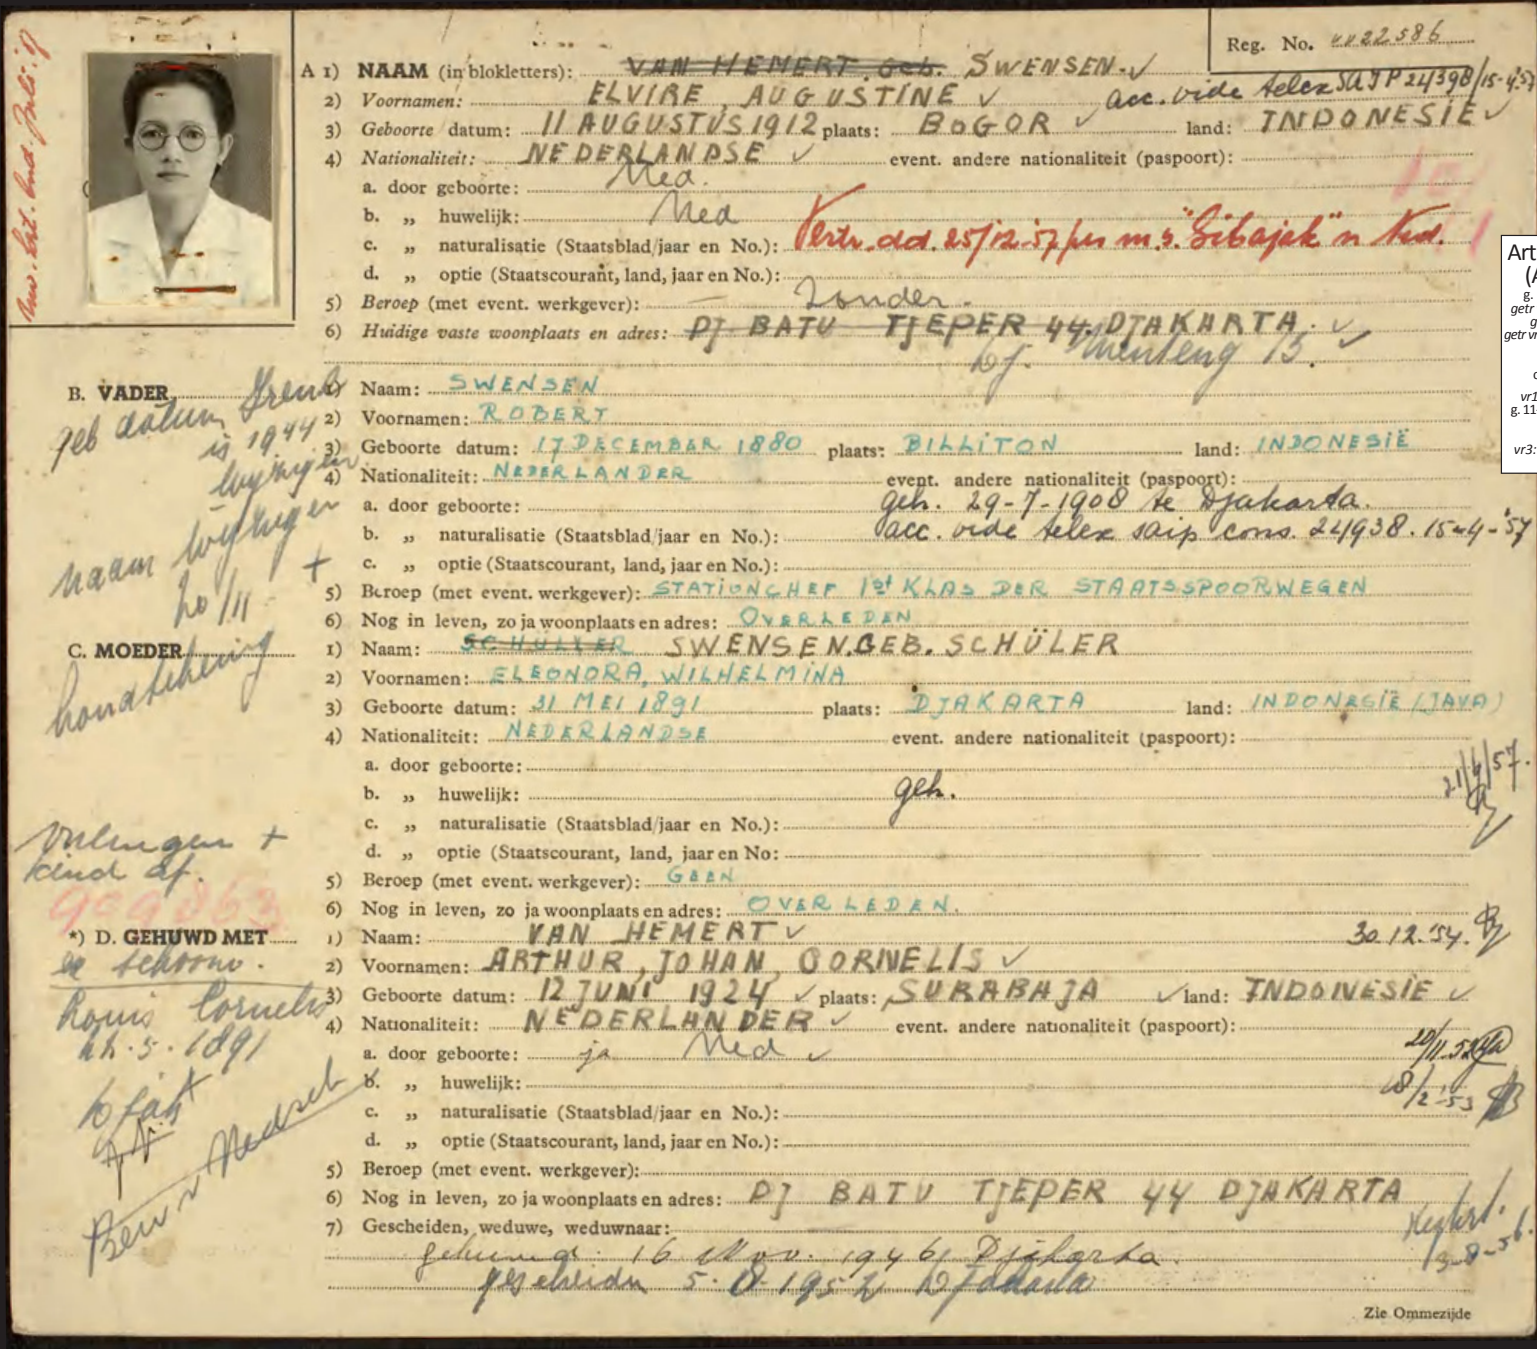 Reg. No. 0022586
A 1) NAAM (in blokletters): VAN HEMERT. Geb. SWENSEN. ✓
2) Voornamen: ELVIRE, AUGUSTINE ✓ acc. vide telex SAIP 24/398/15-4-'57
3) Geboorte datum: 11 AUGUSTUS 1912 plaats: BOGOR ✓ land: INDONESIË ✓
4) Nationaliteit: NEDERLANDSE ✓ event. andere nationaliteit (paspoort):
a. door geboorte: Ned.
b. „ huwelijk: Ned
c. „ naturalisatie (Staatsblad/jaar en No.): Vertr. dd. 25/12-57 per m.s. "Sibajak" n Ned.
d. „ optie (Staatscourant, land, jaar en No.):
5) Beroep (met event. werkgever): Zonder.
6) Huidige vaste woonplaats en adres: DJ BATU TJEPER 44. DJAKARTA. ✓
Dj. Menteng 13. ✓
B. VADER 1) Naam: SWENSEN
geb datum
is 1944
wijzigen
naam wijzigen
20/11
2) Voornamen: ROBERT
3) Geboorte datum: 17 DECEMBER 1880 plaats: BILLITON land: INDONESIË
4) Nationaliteit: NEDERLANDER event. andere nationaliteit (paspoort):
a. door geboorte: geh. 29-7-1908 te Djakarta.
b. „ naturalisatie (Staatsblad/jaar en No.): acc. vide telex saip cons. 24938. 15-4-'57
c. „ optie (Staatscourant, land, jaar en No.):
5) Beroep (met event. werkgever): STATIONCHEF 1st KLAS DER STAATSSPOORWEGEN
6) Nog in leven, zo ja woonplaats en adres: OVERLEDEN
C. MOEDER 1) Naam: SCHULLER SWENSEN.GEB. SCHÜLER
2) Voornamen: ELEONORA, WILHELMINA
3) Geboorte datum: 31 MEI 1891 plaats: DJAKARTA land: INDONESIË (JAVA)
4) Nationaliteit: NEDERLANDSE event. andere nationaliteit (paspoort):
a. door geboorte:
21/4/57.
b. „ huwelijk: geh.
c. „ naturalisatie (Staatsblad/jaar en No.):
d. „ optie (Staatscourant, land, jaar en No:
kind af.
5) Beroep (met event. werkgever): GEEN
909863
6) Nog in leven, zo ja woonplaats en adres: OVERLEDEN.
*) D. GEHUWD MET 1) Naam: VAN HEMERT ✓ 30.12.'54.
2) Voornamen: ARTHUR, JOHAN, CORNELIS ✓
3) Geboorte datum: 12 JUNI 1924 ✓ plaats: SURABAJA ✓ land: INDONESIE ✓
Cornelis
5. 1891
4) Nationaliteit: NEDERLANDER ✓ event. andere nationaliteit (paspoort):
a. door geboorte: ja Ned ✓ 20/11-52
b. „ huwelijk: 18/2-53
c. „ naturalisatie (Staatsblad/jaar en No.):
d. „ optie (Staatscourant, land, jaar en No.):
5) Beroep (met event. werkgever):
6) Nog in leven, zo ja woonplaats en adres: DJ BATU TJEPER 44 DJAKARTA
7) Gescheiden, weduwe, weduwnaar: 3-8-56.
gehuwd. 16 Nov. 1946 Djakarta.
gescheiden 5-8-1952 Djakarta
Zie Ommezijde
Art
(A
g.
getr
g
getr vr
vr1
g. 11
vr3: